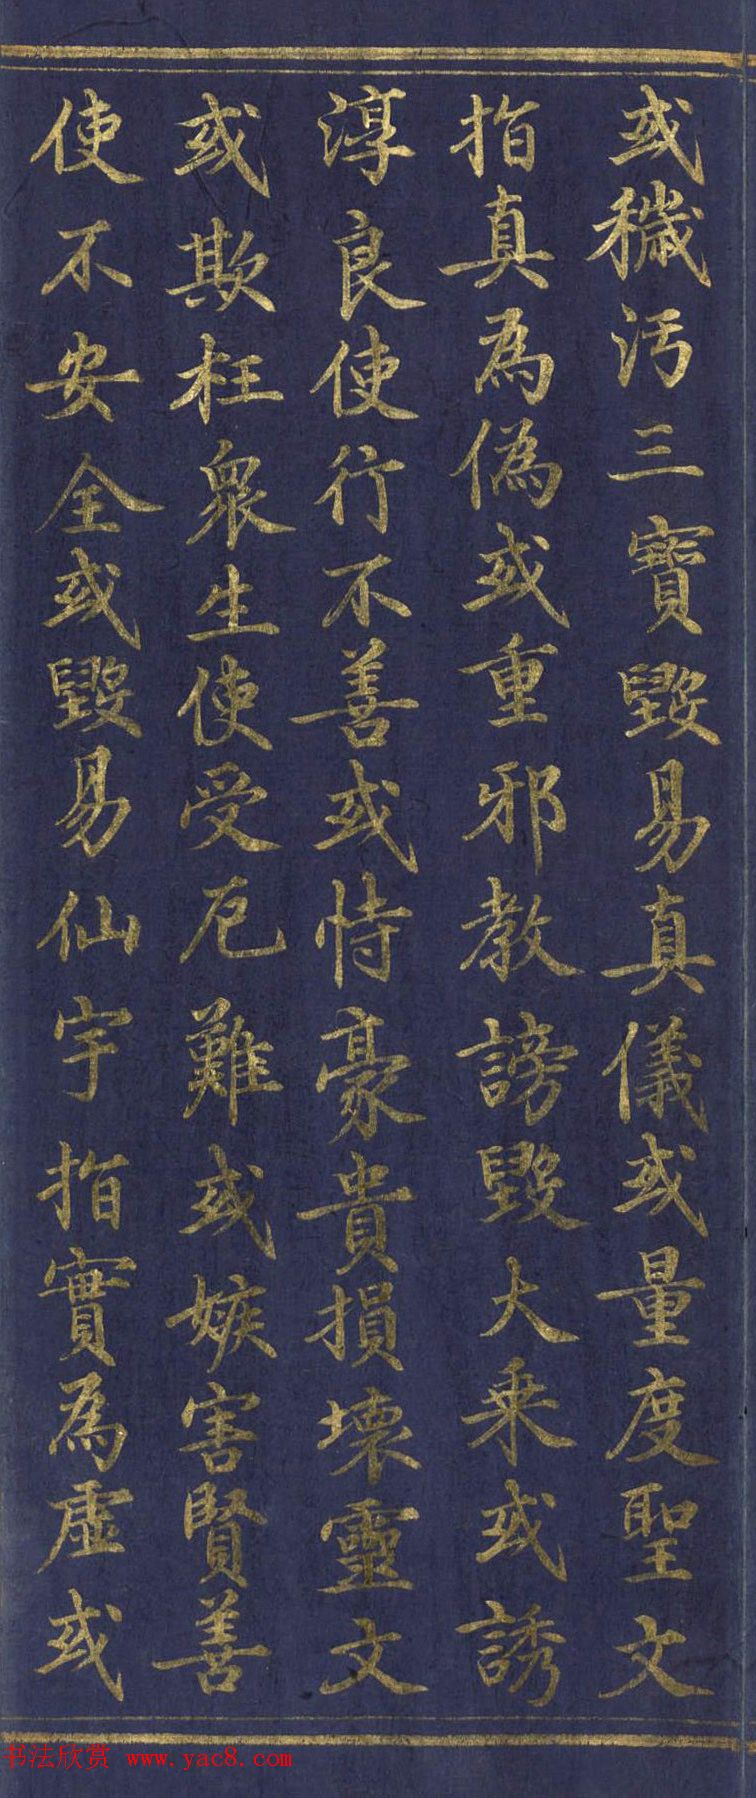 或穢污三寶毀易真儀或量度聖文
指真為偽或重邪教謗毀大乘或誘
淳良使行不善或恃豪貴損壞靈文
或欺枉眾生使受厄難或嫉害賢善
使不安全或毀易仙宇指實為虛或
书法欣赏 www.yac8.com